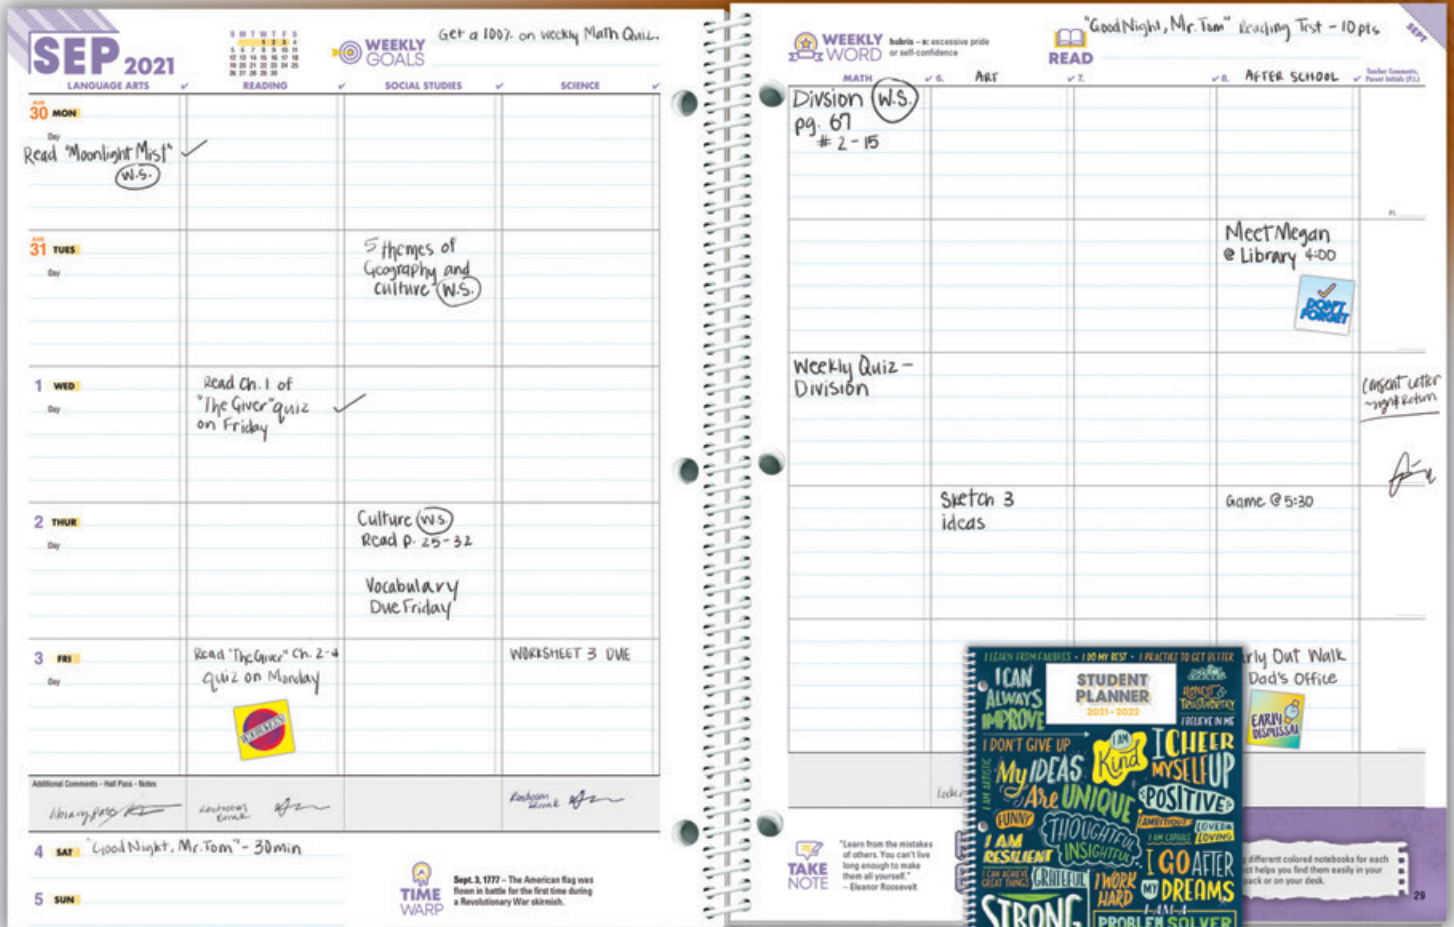 SEP 2021
S M T W T F S
1 2 3 4
5 6 7 8 9 10 11
12 13 14 15 16 17 18
19 20 21 22 23 24 25
26 27 28 29 30
WEEKLY GOALS
Get a 100% on weekly Math Quiz.
LANGUAGE ARTS
READING
SOCIAL STUDIES
SCIENCE
AUG
30 MON
Day
Read "Moonlight Mist"
W.S.
AUG
31 TUES
Day
5 themes of
Geography and
culture W.S.
1 WED
Day
Read Ch. 1 of
"The Giver" quiz
on Friday
2 THUR
Day
Culture W.S.
Read p. 25-32
Vocabulary
Due Friday
3 FRI
Day
Read "The Giver" Ch. 2-4
quiz on Monday
WORKSHEET 3 DUE
Additional Comments - Hall Pass - Notes
library pass
Restroom
Break
Restroom
Break
4 SAT
"Good Night, Mr. Tom" - 30 min
5 SUN
TIME WARP
Sept. 3, 1777 – The American flag was
flown in battle for the first time during
a Revolutionary War skirmish.
WEEKLY WORD
hubris – n: excessive pride
or self-confidence
READ
"Good Night, Mr. Tom" Reading Test - 10 pts
SEPT
MATH
6. ART
7.
8. AFTER SCHOOL
Teacher Comments,
Parent Initials (P.I.)
Divsion W.S.
pg. 67
# 2 - 15
P.I.
Meet Megan
@ Library 4:00
DON'T FORGET
Weekly Quiz -
Division
Consent Letter
~sign & Return
Sketch 3
ideas
Game @ 5:30
rly Out Walk
Dad's Office
EARLY DISMISSAL
TAKE NOTE
"Learn from the mistakes
of others. You can't live
long enough to make
them all yourself."
– Eleanor Roosevelt
I LEARN FROM FAILURES • I DO MY BEST • I PRACTICE TO GET BETTER
I CAN
ALWAYS
IMPROVE
STUDENT
PLANNER
2021-2022
HONEST &
TRUSTWORTHY
I BELIEVE IN ME
I DON'T GIVE UP
I AM
Kind
I CHEER
MYSELF UP
I AM ARTISTIC
My IDEAS
Are UNIQUE
POSITIVE
FUNNY
THOUGHTFUL
INSIGHTFUL
AMBITIOUS
I AM CAPABLE
LOVED &
LOVING
I AM
RESILIENT
I CAN ACHIEVE
GREAT THINGS
GRATEFUL
I WORK
HARD
I GO AFTER
MY DREAMS
STRONG
I AM A
PROBLEM SOLVER
different colored notebooks for each
ct helps you find them easily in your
pack or on your desk.
29